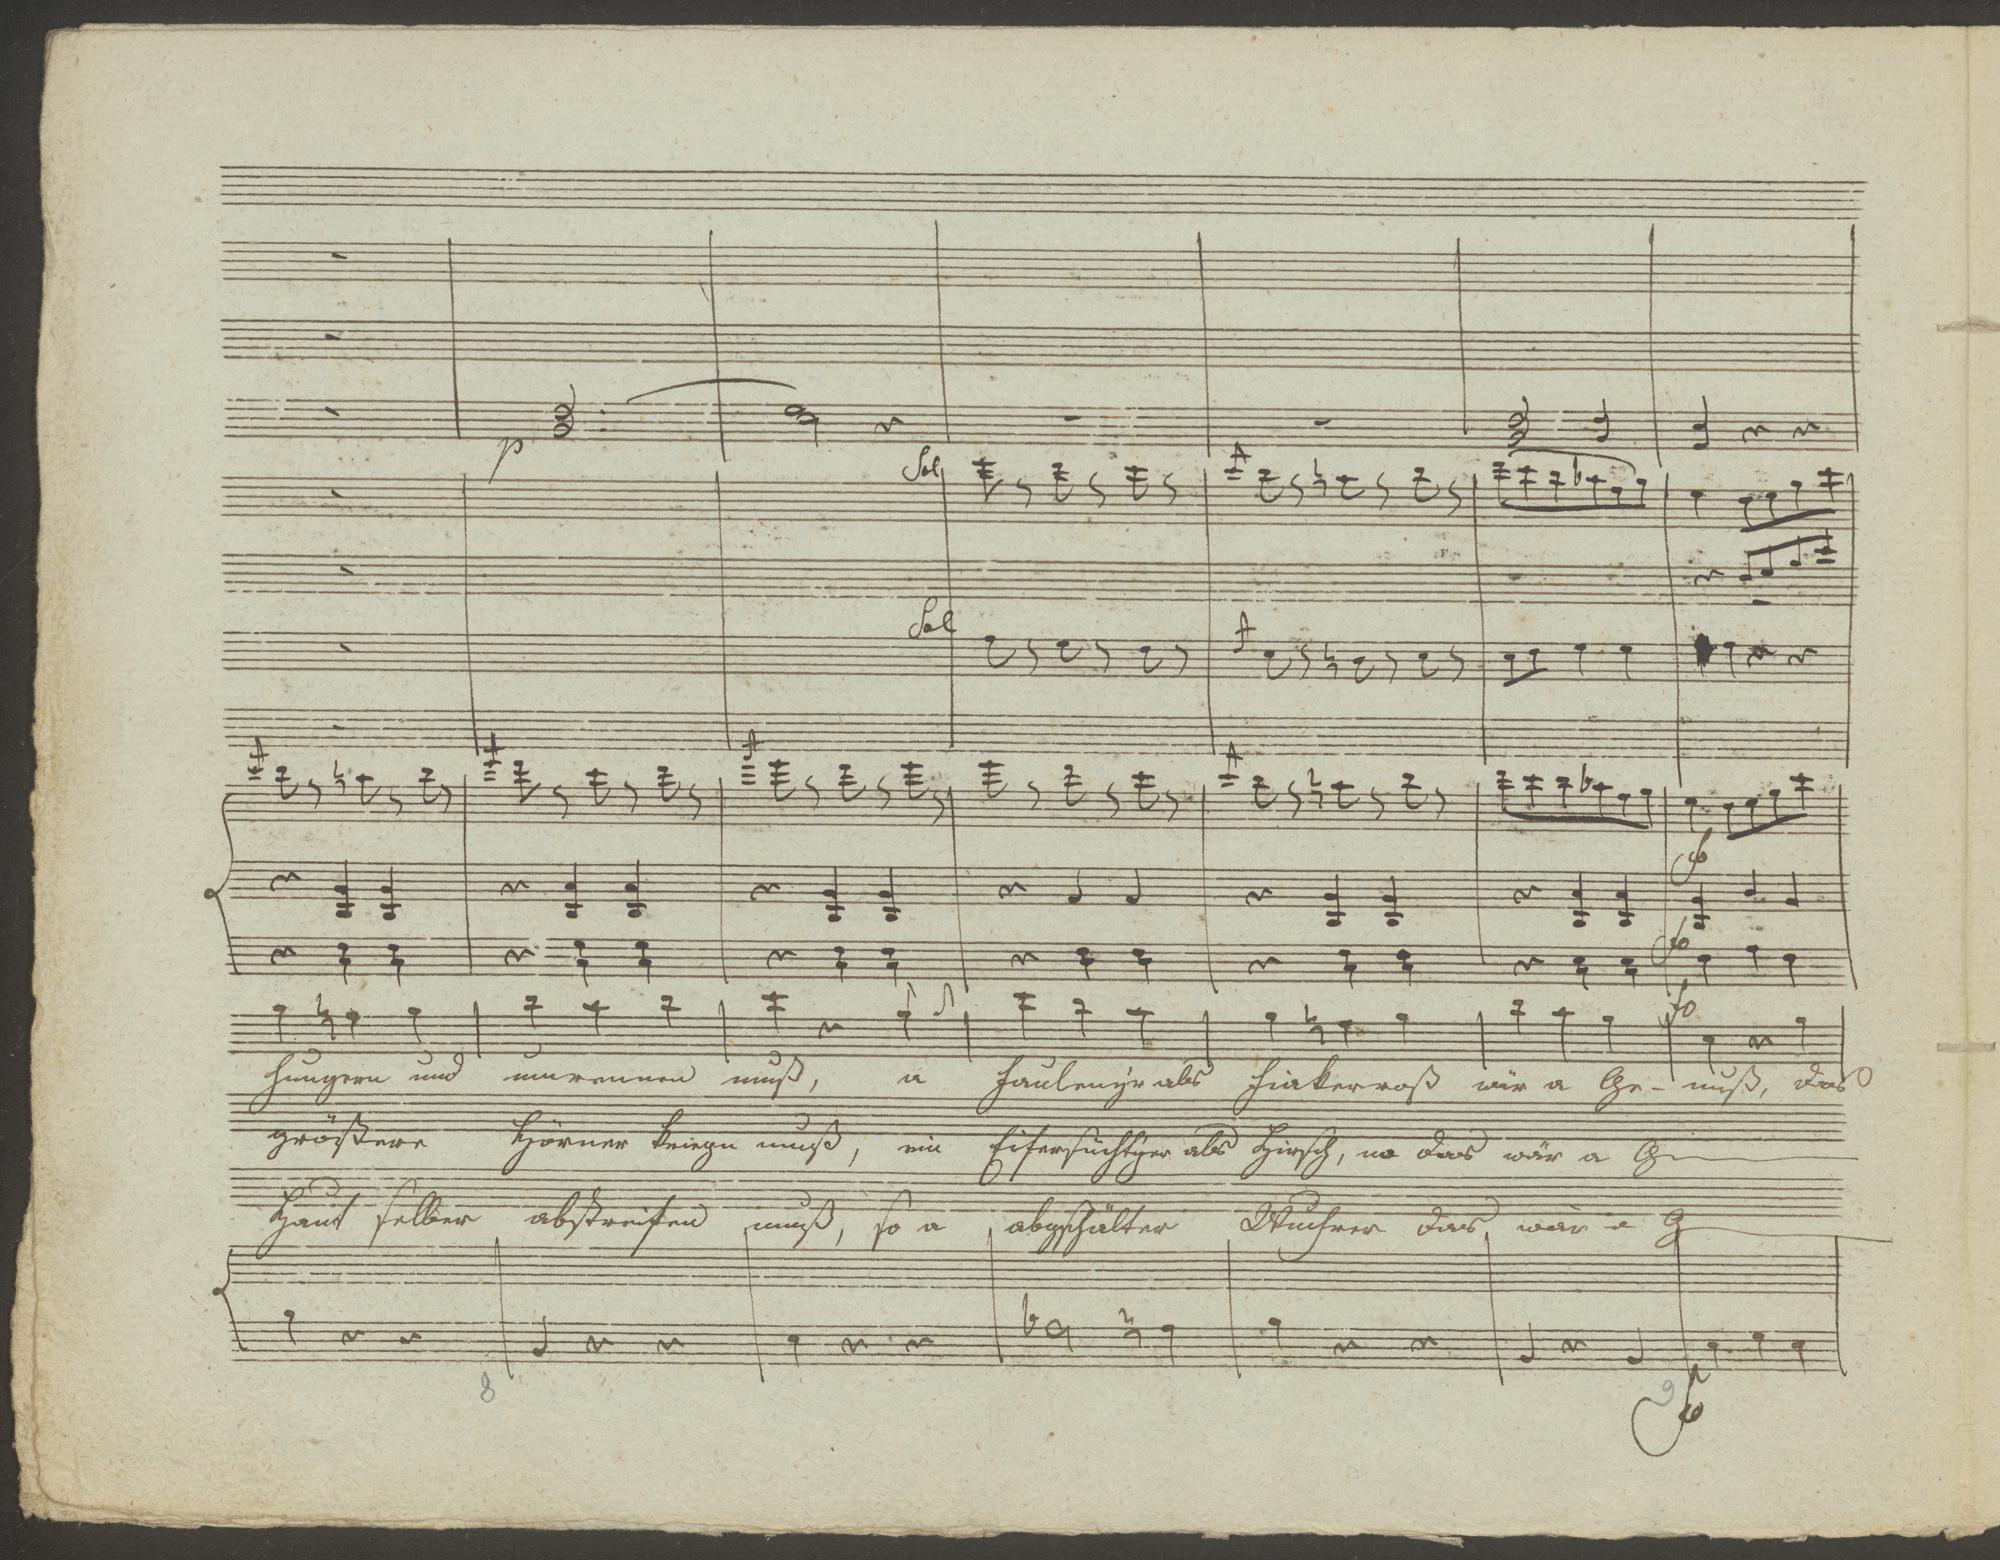 p
Sol
Sol
fo
hungern und umrennen muß, a Faulenzer als Fiakerroß wär a Ge- nuß, das
größere Hörner kriegn muß, ein Eifersüchtger als Hirsch, no das wär a G
Haut selber abstreifen muß, so a abgschälter Wuchrer das wär a G
8
9